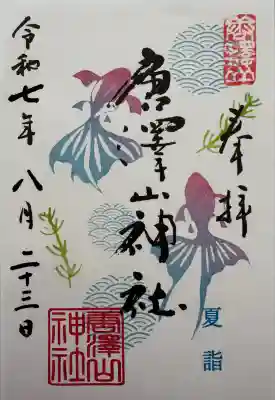 唐澤山
奉拝
夏詣
唐澤山神社
唐澤山
神社
令和七年八月二十三日